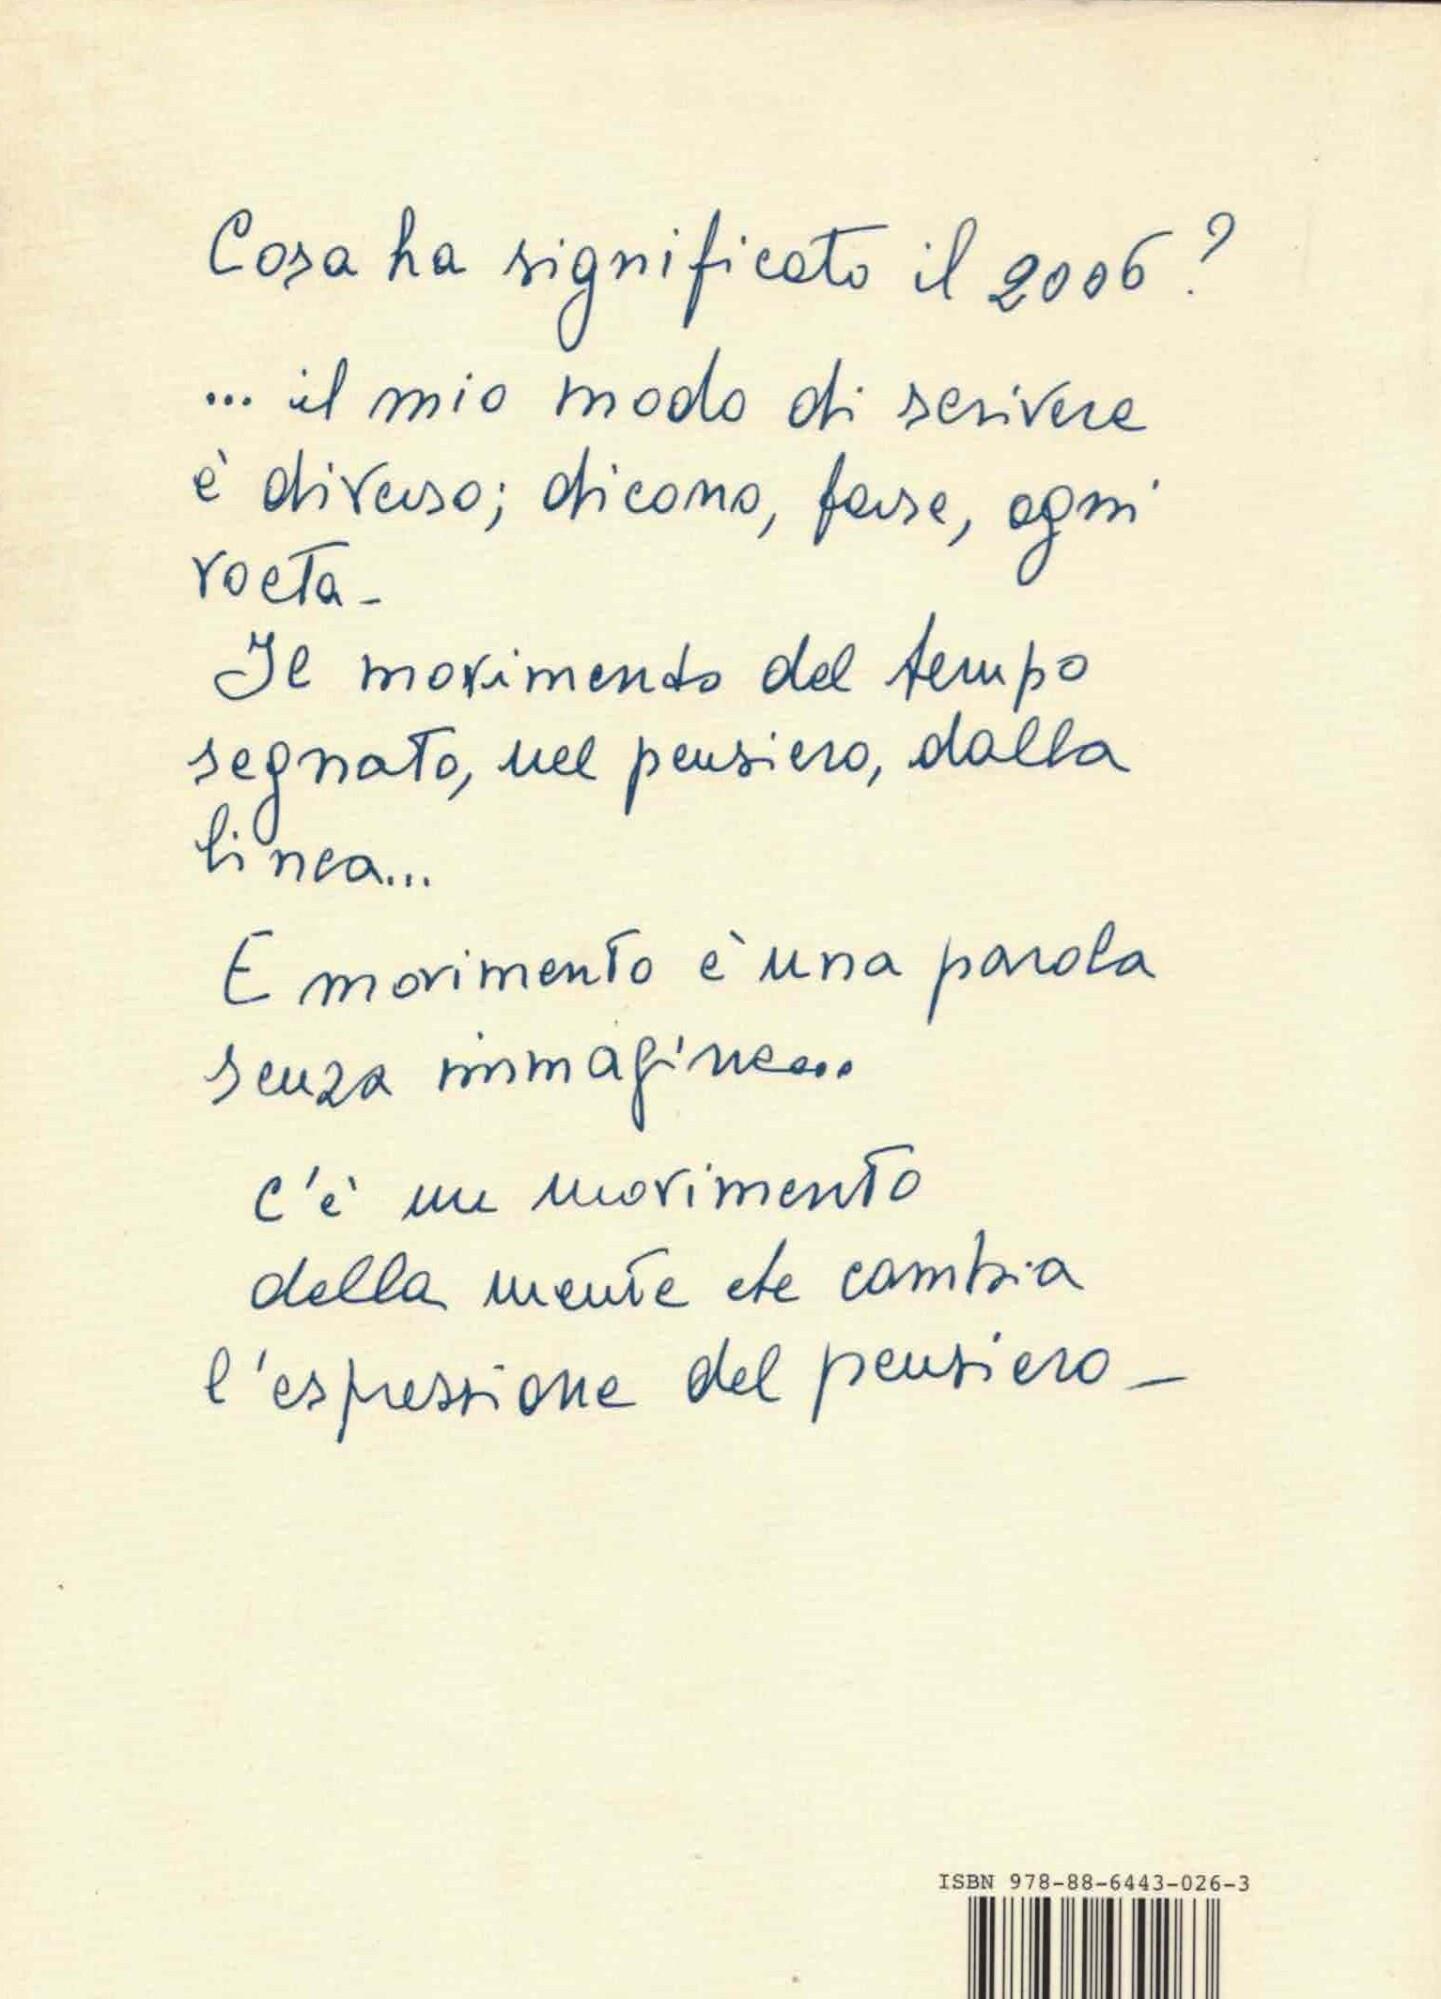 Cosa ha significato il 2006?
... il mio modo di scrivere
è diverso; dicono, forse, ogni
volta -
Il movimento del tempo
segnato, nel pensiero, dalla
linea...
E movimento è una parola
senza immagine...
C'è un movimento
della mente che cambia
l'espressione del pensiero -
ISBN 978-88-6443-026-3